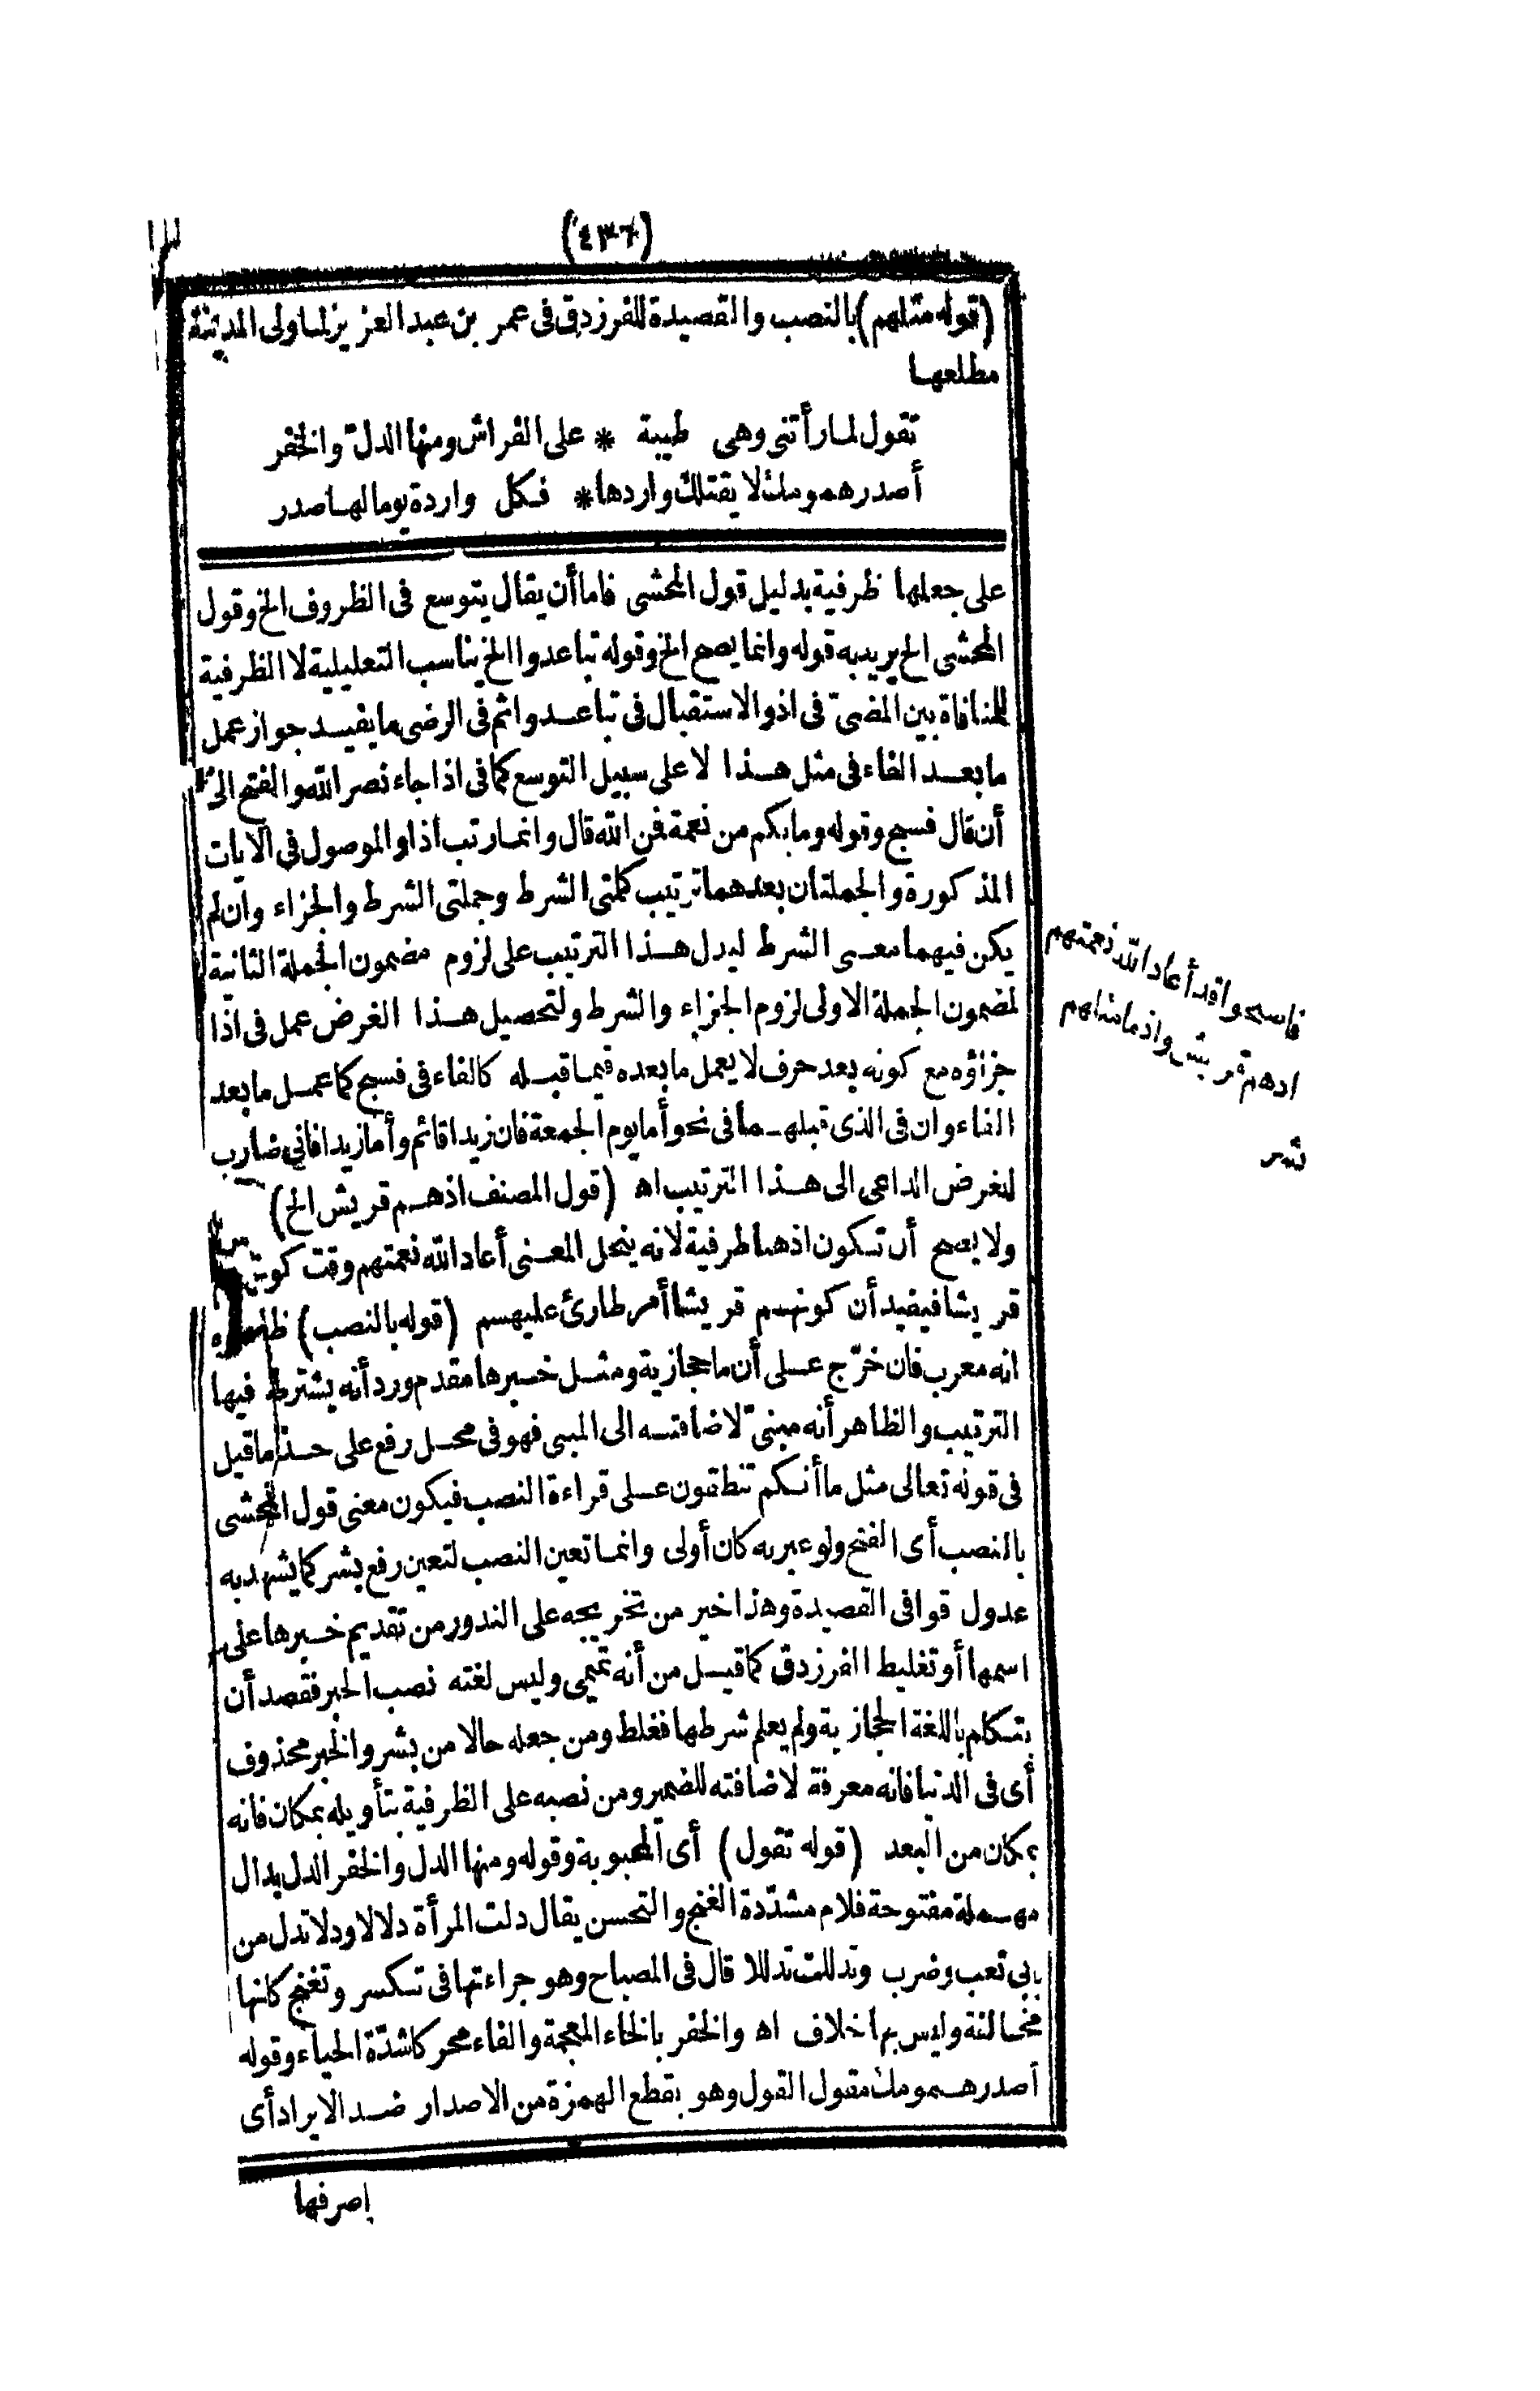 (٤٣٦)
(قوله مثلهم) بالنصب والقصيدة للفرزدق فى عمر بن عبد العزيز لما ولى المدينة
مطلعها
تقول لما رأتنى وهى طيبة * على الفراش ومنها الدلّ والخفر
أصدر همومك لا يقتلك واردها * فكل واردة يوما لها صدر
على جعلها ظرفية بدليل قول المحشى فاما أن يقال يتوسع فى الظروف الخ وقول
المحشى الخ يريد به قوله وانما يصح الخ وقوله تباعدوا الخ يناسب التعليلية لا الظرفية
للمنافاة بين المضىّ فى اذ والاستقبال فى تباعدوا ثم فى الرضى ما يفيد جواز عمل
ما بعد الفاء فى مثل هذا لا على سبيل التوسع كما فى اذا جاء نصر الله والفتح الى
أن قال فسبح وقوله وما بكم من نعمة فمن الله قال وانما رتب اذا والموصول فى الآيات
المذكورة والجملتان بعدهما ترتيب كلمتى الشرط وجملتى الشرط والجزاء وان لم
يكن فيهما معنى الشرط ليدل هذا الترتيب على لزوم مضمون الجملة الثانية
لمضمون الجملة الاولى لزوم الجزاء والشرط ولتحصيل هذا الغرض عمل فى اذا
جزاؤه مع كونه بعد حرف لا يعمل ما بعده فيما قبله كالفاء فى فسبح كما عمل ما بعد
الفاء وان فى الذى قبلهما فى نحو أما يوم الجمعة فان زيدا قائم وأما زيدا فانى ضارب
للغرض الداعى الى هذا الترتيب اه (قول المصنف اذ هم قريش الخ)
ولا يصح أن تكون اذ هنا ظرفية لانه ينحل المعنى أعاد الله نعمتهم وقت كونهم
قريشا فيفيد أن كونهم قريشا أمر طارئ عليهم (قوله بالنصب) ظاهره
انه معرب فان خرّج على أن ما حجازية ومثل خبرها مقدم ورد أنه يشترط فيها
الترتيب والظاهر أنه مبنىّ لاضافته الى المبنى فهو فى محل رفع على حد ما قيل
فى قوله تعالى مثل ما أنكم تنطقون على قراءة النصب فيكون معنى قول المحشى
بالنصب أى الفتح ولو عبر به كان أولى وانما تعين النصب لتعين رفع بشر كما يشهد به
عدول قوافى القصيدة وهذا خير من تخريجه على الندور من تقديم خبرها على
اسمها أو تغليط الفرزدق كما قيل من أنه تميمى وليس لغته نصب الخبر فقصد أن
يتكلم باللغة الحجازية ولم يعلم شرطها فغلط ومن جعله حالا من بشر والخبر محذوف
أى فى الدنيا فانه معرفة لاضافته للضمير ومن نصبه على الظرفية بتأويله بمكان فانه
بمكان من البعد (قوله تقول) أى المحبوبة وقوله ومنها الدل والخفر الدل بدال
مهملة مفتوحة فلام مشدّدة الغنج والتحسن يقال دلت المرأة دلالا ودلا تدل من
بابى تعب وضرب وتدللت تدللا قال فى المصباح وهو جراءتها فى تكسر وتغنج كانها
مخالفة وليس بها خلاف اه والخفر بالخاء المعجمة والفاء محركا شدّة الحياء وقوله
أصدر همومك مقول القول وهو بقطع الهمزة من الاصدار ضد الايراد أى
اصرفها
فاصبحوا قد أعاد الله نعمتهم
اذ هم قريش واذ ما مثلهم
بشر